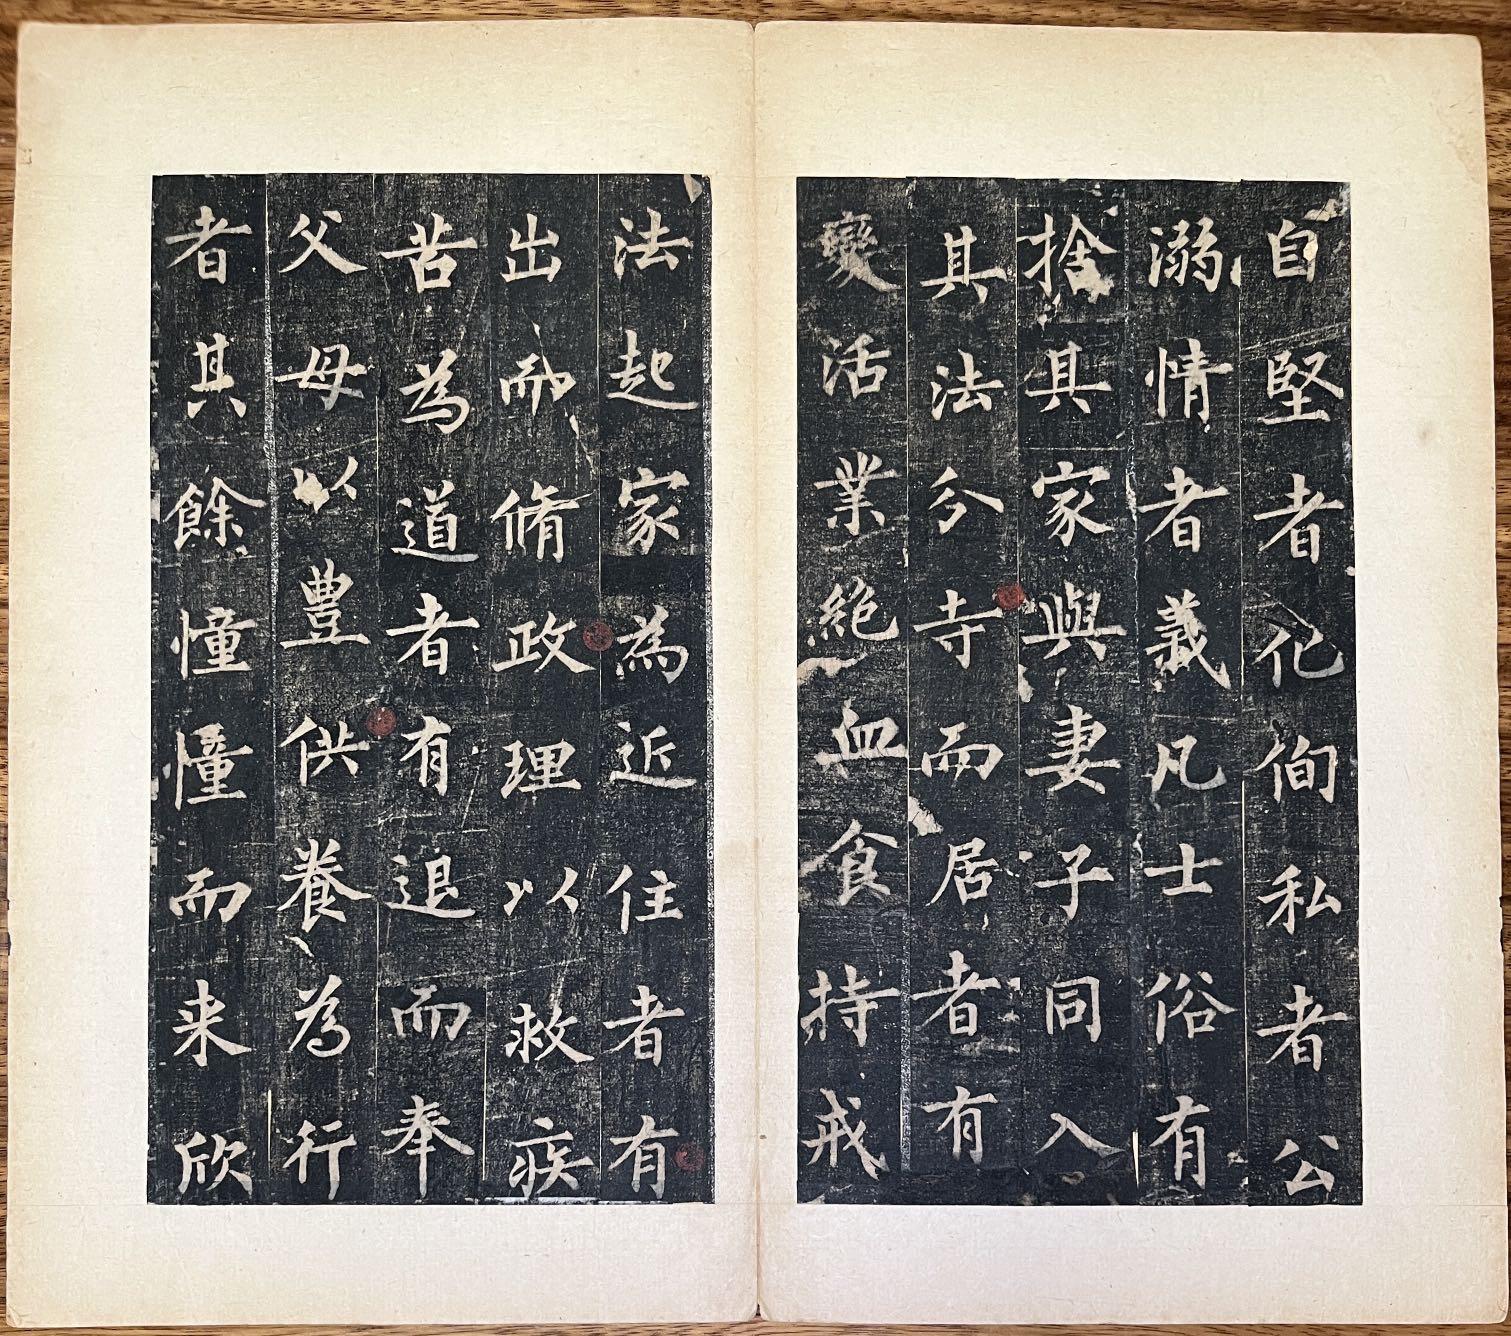 自堅者化徇私者公
溺情者義凡士俗有
捨其家與妻子同入
其法分寺而居者有
變活業絶血食持戒
法起家為近住者有
出而脩理政以救疾
苦為道者有退而奉
父母以豊供養為行
者其餘憧憧而来欣